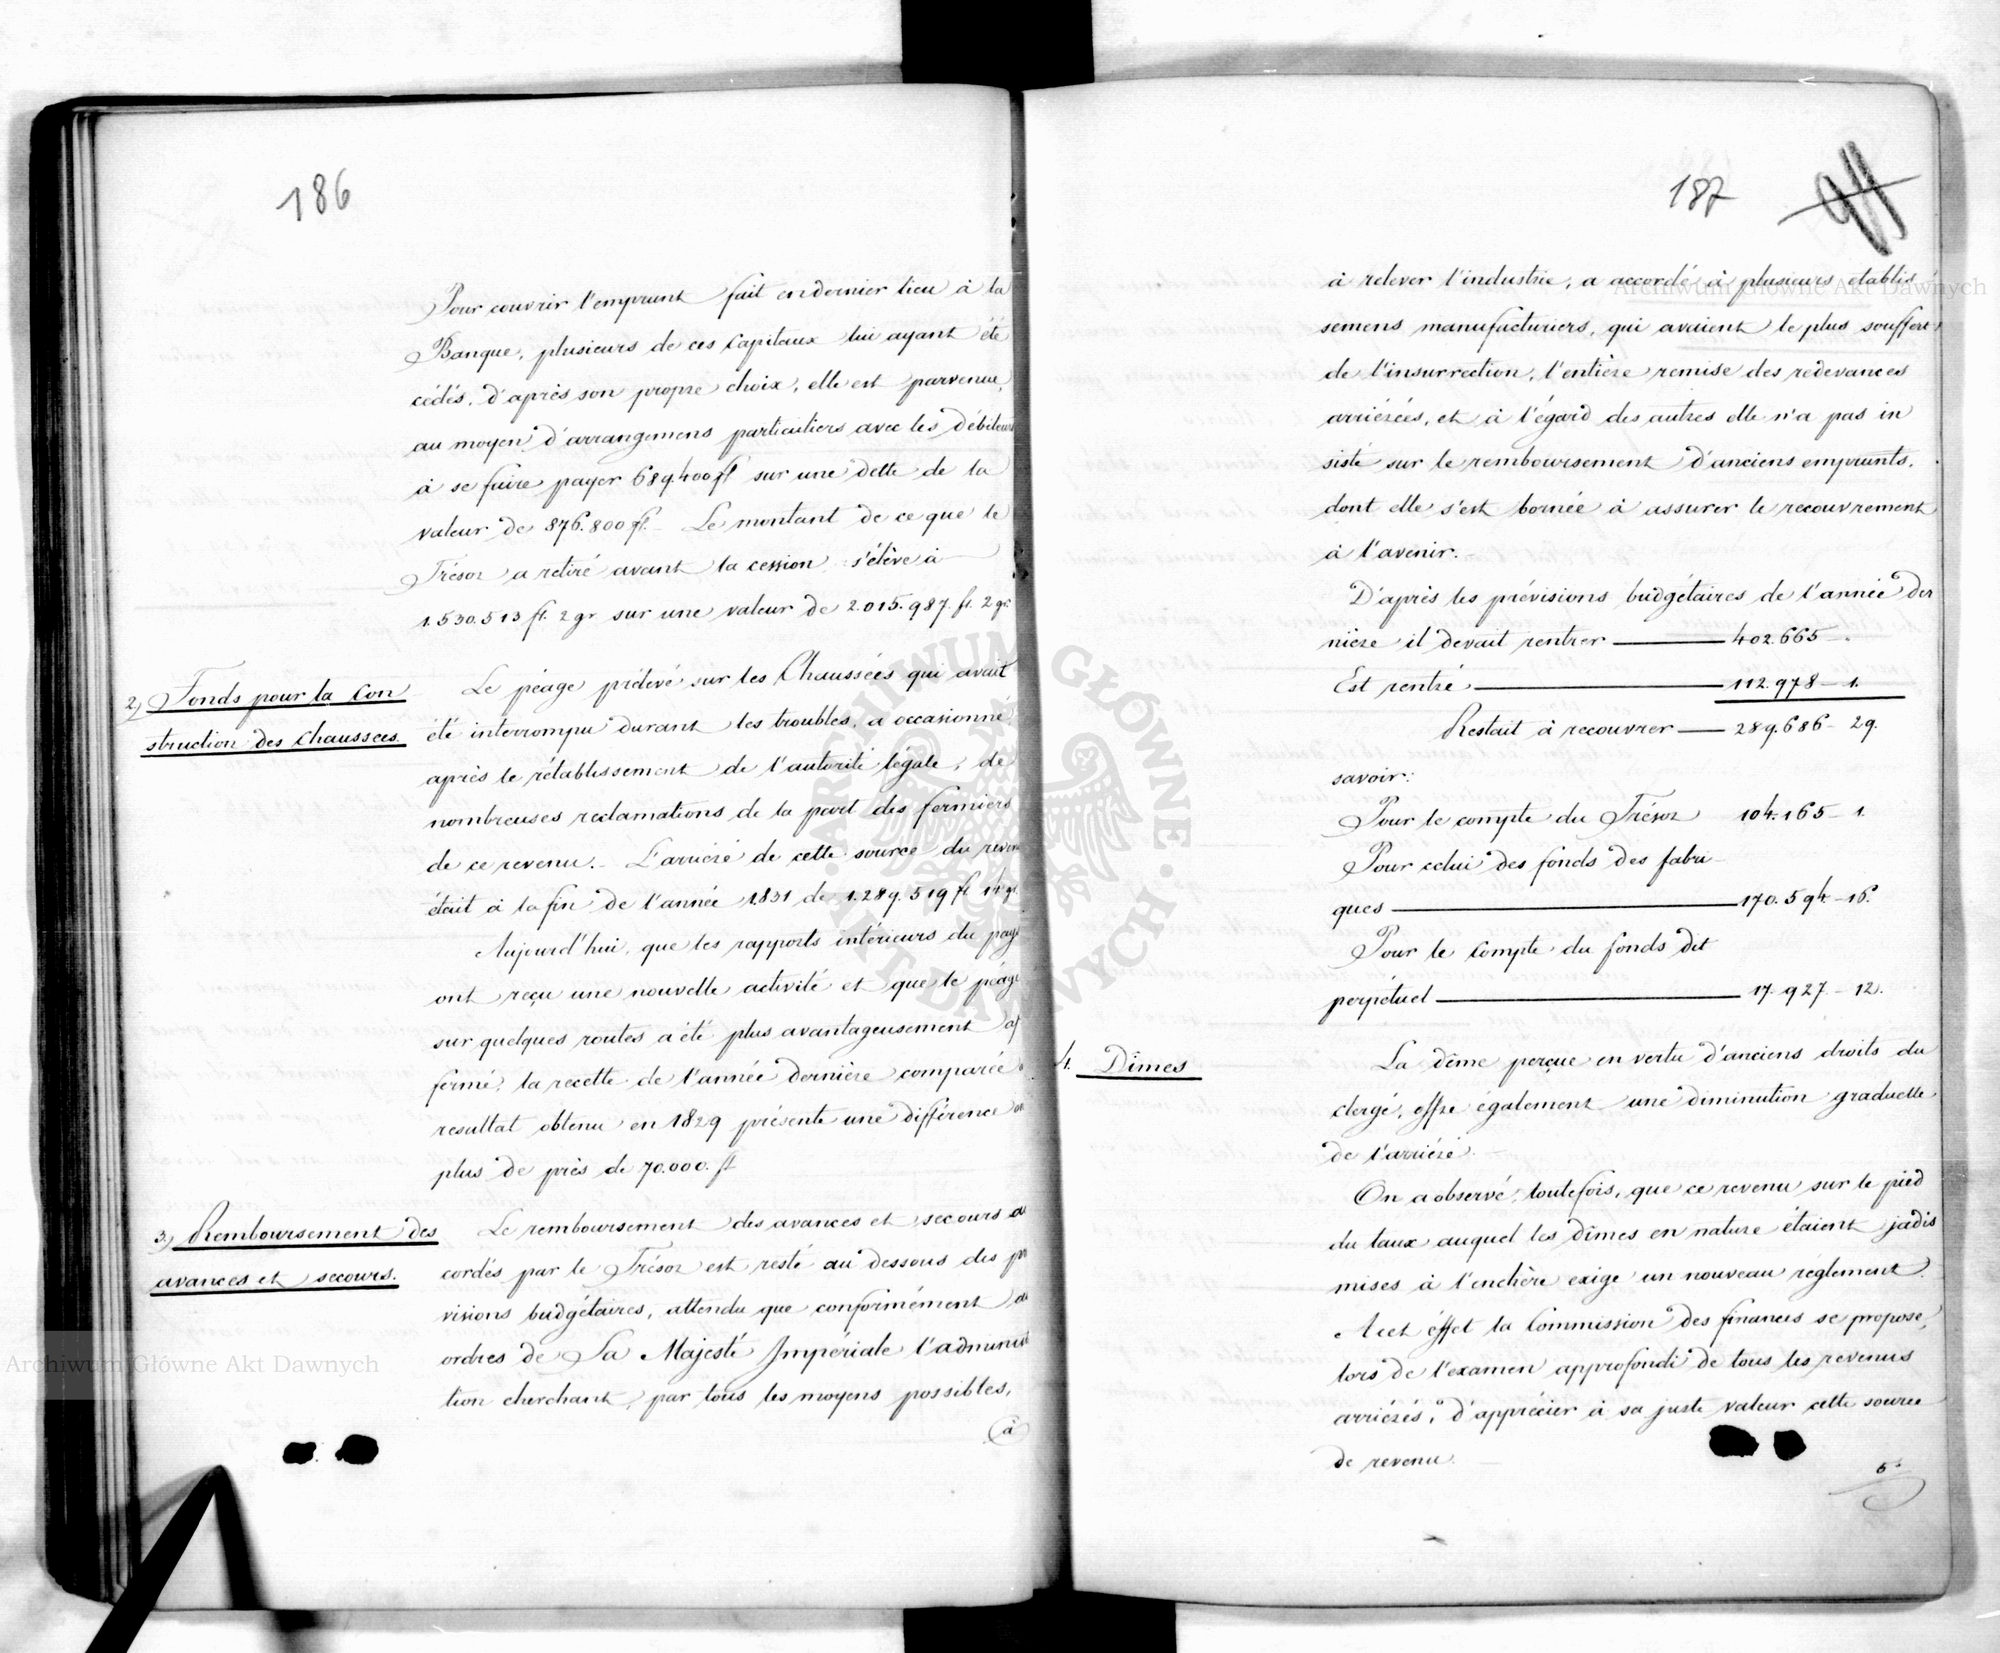 186
Pour couvrir l'emprunt fait en dernier lieu à la
Banque, plusieurs de ces Capitaux lui ayant été
cédés, d'après son propre choix, elle est parvenue,
au moyen d'arrangemens particuliers avec les Débiteurs
à se faire payer 689.400 fl sur une dette de la
valeur de 876.800 fl. Le montant de ce que le
Trésor a retiré avant la cession s'élève à
1.530.513 fl. 2 gr sur une valeur de 2.015.987. fl. 2 gr.
2) Fonds pour la Con
struction des Chaussées.
Le péage prélevé sur les Chaussées qui avait
été interrompu durant les troubles, a occasionné,
après le rétablissement de l'autorité légale, de
nombreuses reclamations de la part des fermiers
de ce revenu. L'arriéré de cette source du reven
était à la fin de l'année 1831 de 1.289.519 fl 14 gr.
Aujourd'hui, que les rapports intérieurs du pays
ont reçu une nouvelle activité et que le péage
sur quelques routes a été plus avantageusement af
fermé, la recette de l'année dernière comparée
resultat obtenu en 1829 présente une différence
plus de près de 70.000. fl
3) Remboursement des
avances et secours.
Le remboursement des avances et secours ac
cordés par le Trésor est resté au dessous des pr
visions budgétaires, attendu que conformément
ordres de Sa Majesté Impériale l'administ
tion cherchant, par tous les moyens possibles,
à
187
à relever l'industrie, a accordé à plusieurs établis
semens manufacturiers, qui avaient le plus souffert
de l'insurrection, l'entière remise des redevances
arriérées, et à l'égard des autres elle n'a pas in
sisté sur le remboursement d'anciens emprunts,
dont elle s'est bornée à assurer le recouvrement
à l'avenir.
D'après les prévisions budgétaires de l'année der
nière il devait rentrer — 402.665 — .
Est rentré — 112.978 — 1.
Restait à recouvrer — 289.686 — 29.
savoir:
Pour le compte du Trésor 104.165 — 1.
Pour celui des fonds des fabri
ques — 170.594 — 16.
Pour le compte du fonds dit
perpétuel — 17.927 — 12.
4. Dîmes
La dîme perçue en vertu d'anciens droits du
clergé, offre également une diminution graduelle
de l'arriéré.
On a observé, toutefois, que ce revenu sur le pied
du taux auquel les dîmes en nature étaient jadis
mises à l'enchère exige un nouveau réglement.
A cet éffet la Commission des finances se propose,
lors de l'examen approfondi de tous les revenus
arriérés, d'apprécier à sa juste valeur cette source
de revenu.
5.
Archiwum Główne Akt Dawnych
Archiwum Główne Akt Dawnych
ARCHIWUM GŁÓWNE · AKT DAWNYCH ·